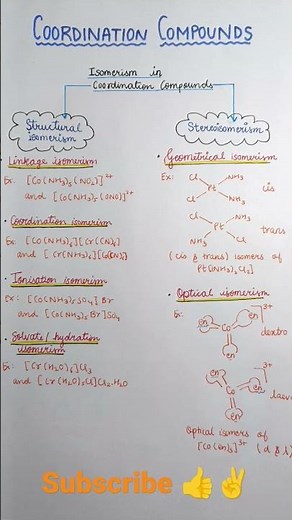 COORDINATION COMPOUNDS
Isomerism in
Coordination Compounds
Structural
isomerism
Stereoisomerism
• Linkage isomerism
Ex: [Co(NH₃)₅(NO₂)]²⁺
and [Co(NH₃)₅(ONO)]²⁺
• Coordination isomerism
Ex: [Co(NH₃)₆][Cr(CN)₆]
and [Cr(NH₃)₆][Co(CN)₆]
• Ionisation isomerism
Ex: [Co(NH₃)₅SO₄]Br
and [Co(NH₃)₅Br]SO₄
• Solvate/hydration
isomerism
Ex: [Cr(H₂O)₆]Cl₃
and [Cr(H₂O)₅Cl]Cl₂.H₂O
• Geometrical isomerism
Ex:
Cl NH₃
Pt
Cl NH₃
cis
Cl NH₃
Pt
NH₃ Cl
trans
(cis & trans) isomers of
Pt(NH₃)₂Cl₂]
• Optical isomerism
Ex:
en 3+
en Co
en
dextro
en 3+
Co en
en
laev
Optical isomers of
[Co(en)₃]³⁺ (d & l)
Subscribe 👍✌